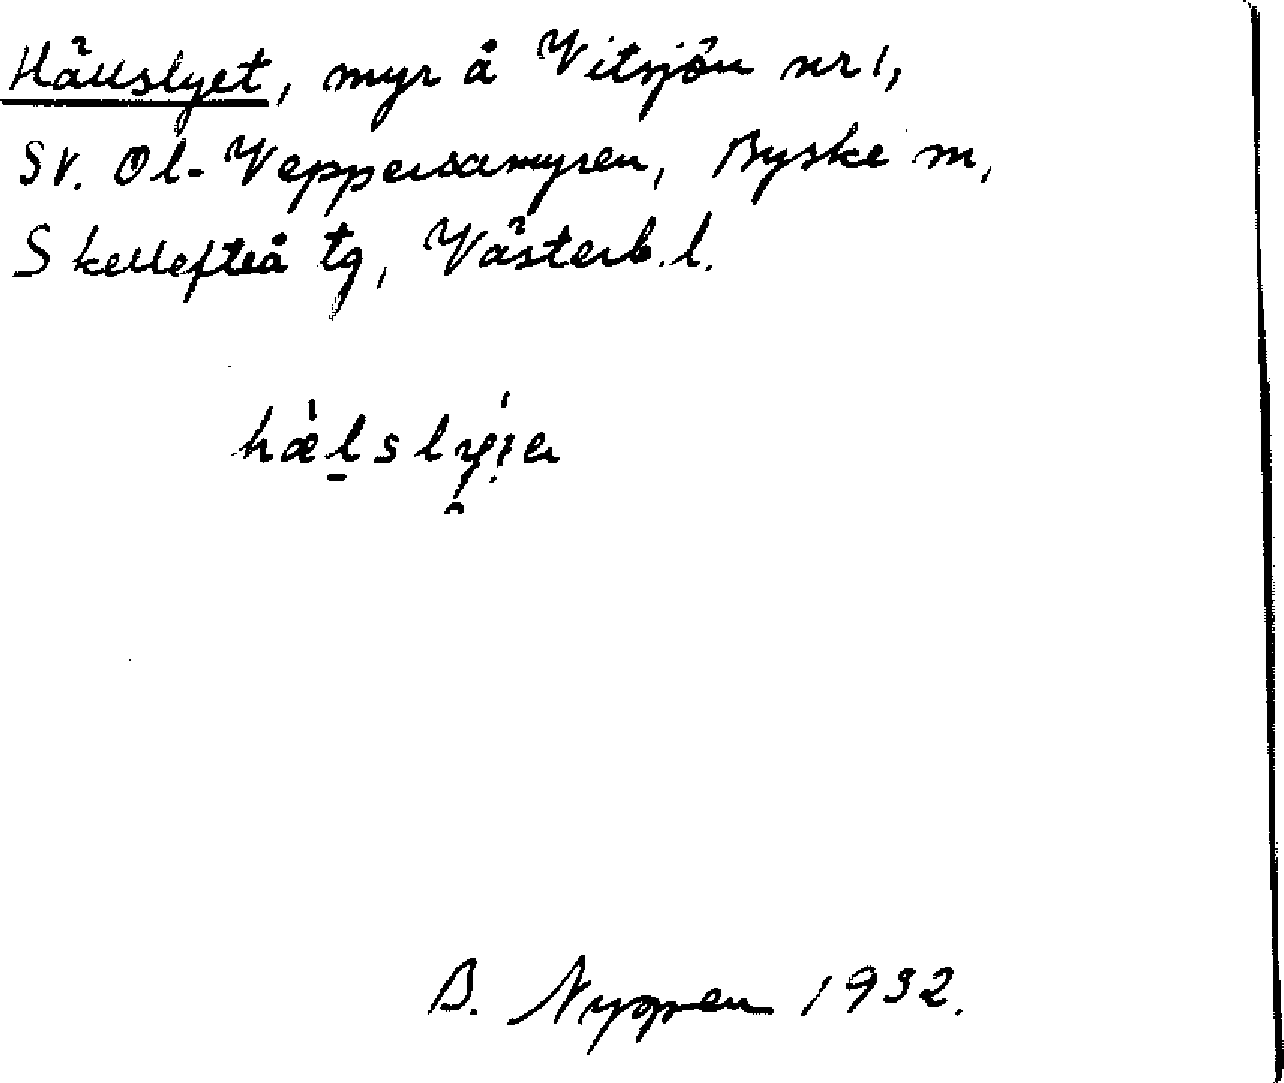 Hällslyet, myr å Vitsjön nr 1,
SV. Ol-Veppersamyren, Byske sn,
Skellefteå tg, Västerb. l.
B. Nygren 1932.